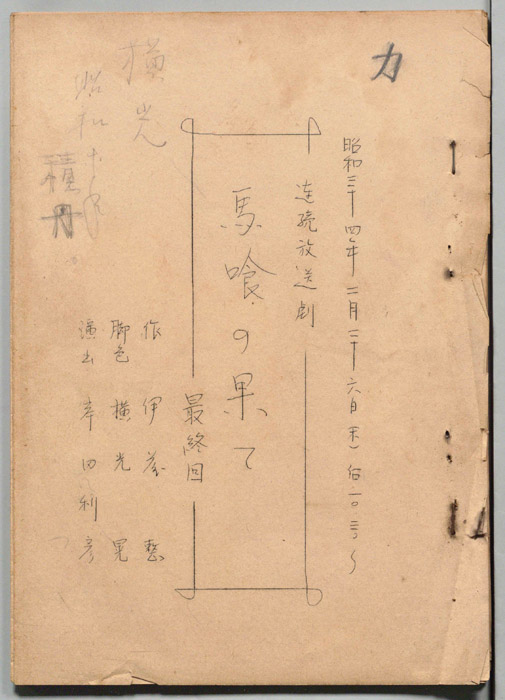 カ
昭和三十四年二月二十六日(木)后一・〇三〜
連続放送劇
馬喰の果て
最終回
作 伊藤 整
脚色 横光 晃
演出 幸田利彦
横光
昭和
積丹